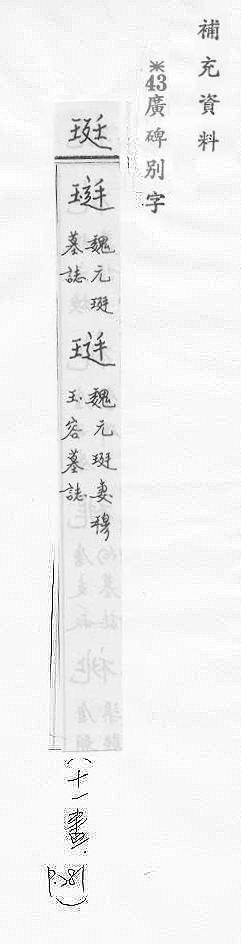 補充資料
※43廣碑别字
珽
魏元珽
墓誌
魏元珽妻穆
玉容墓誌
(十一畫.
P.281)